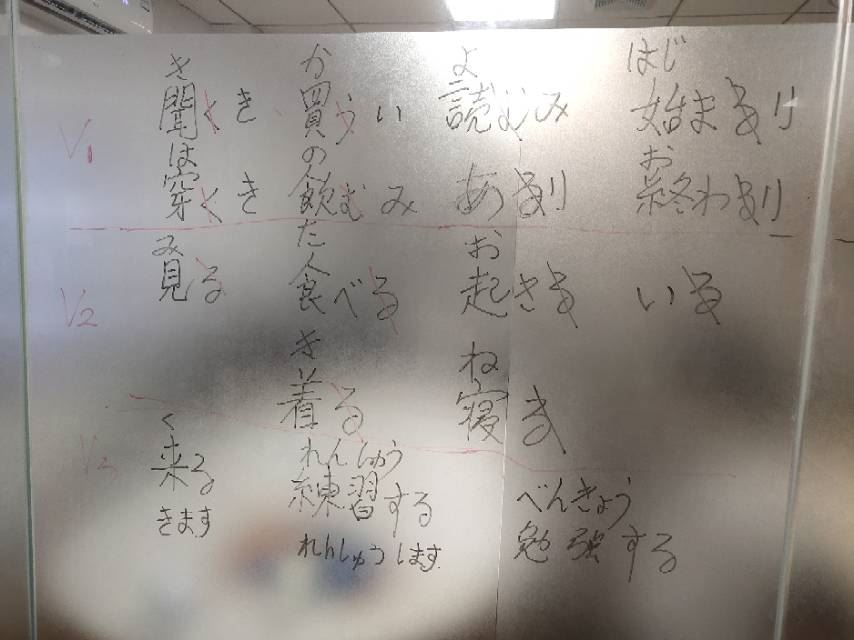 き か よ はじ
V1 聞くき 買うい 読むみ 始まるり
は の お
穿くき 飲むみ あるり 終わるり
み た お
V2 見る 食べる 起きる いる
き ね
着る 寝る
く れんしゅう
V3 来る 練習する べんきょう
きます れんしゅうします 勉強する